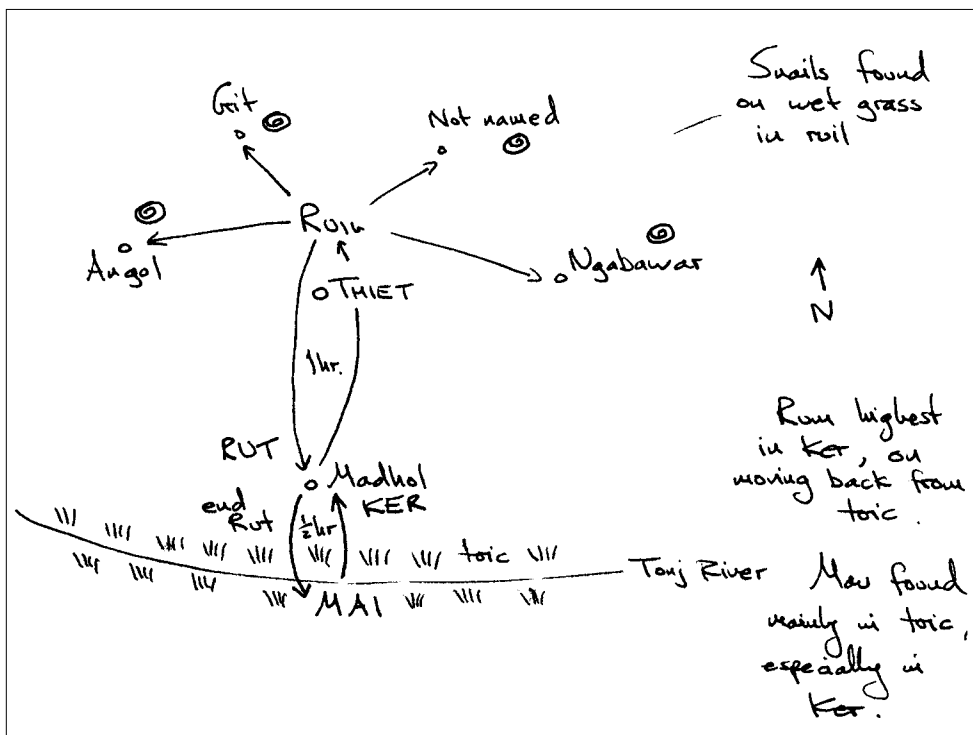 Git
Not named
Snails found
on wet grass
in ruil
Angol
Ruin
Ngabawar
THIET
N
1 hr.
RUT
Madhol
KER
end
Rut
½ hr
toic
Tonj River
MAI
Rum highest
in Ker, on
moving back from
toic.
Mau found
mainly in toic,
especially in
Ker.